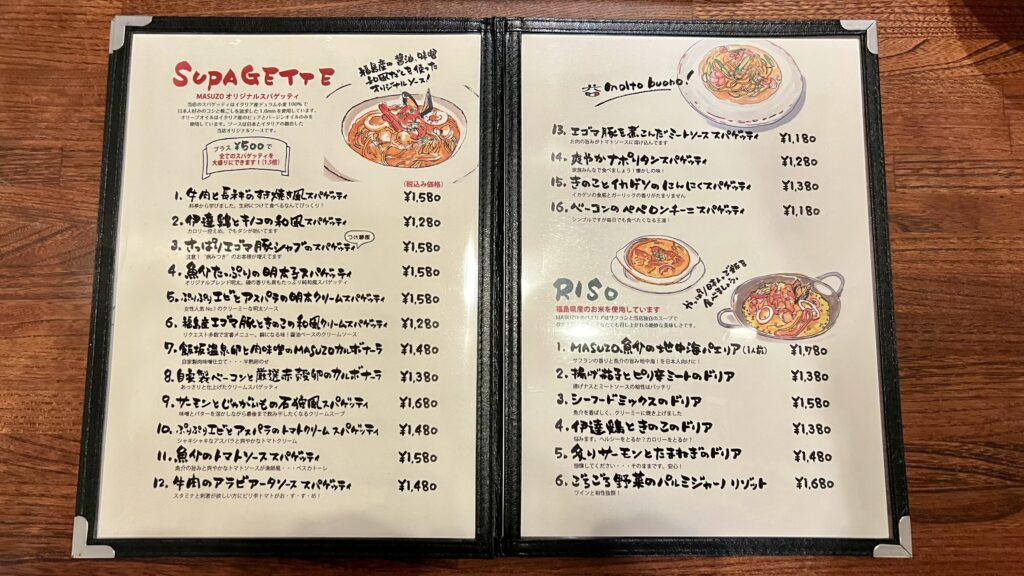 SUPAGETTE
MASUZO オリジナルスパゲッティ
当店のスパゲッティはイタリア産デュラム小麦100%で
日本人好みのコシと喉ごしを追求した1.6mmを使用しています。
オリーブオイルはイタリア産のピュアとバージンオイルのみを
使用しています。ソースは日本とイタリアの融合した
当店オリジナルソースです。
福島産の醤油、味噌
和風だしを使った
オリジナルソース!
プラス ¥500で
全てのスパゲッティを
大盛りにできます!(1.5倍)
(税込み価格)
1. 牛肉と長ネギのすき焼き風スパゲッティ ¥1,580
お夢から学びました。生卵につけて食べるなんてびっくり!
2. 伊達鶏とキノコの和風スパゲッティ ¥1,280
カロリー控えめ。でもダシが効いてます
3. さっぱりエゴマ豚シャブのスパゲッティ つけ麺風 ¥1,580
注意!“病みつき”のお客様が増えてます
4. 魚介たっぷりの明太子スパゲッティ ¥1,580
オリジナルブレンド明太。磯の香りも真もたっぷり純和風スパゲッティ
5. ぷりぷりエビとアスパラの明太クリームスパゲッティ ¥1,580
女性人気No.1のクリーミーな明太ソース
6. 福島産エゴマ豚ときのこの和風クリームスパゲッティ ¥1,280
リクエスト多数で定番メニュー。癖になる味!醤油ベースのクリームソース
7. 飯坂温泉卵と肉味噌のMASUZOカルボナーラ ¥1,480
自家製肉味噌仕立て・・・半熟卵のせ
8. 自家製ベーコンと厳選赤殻卵のカルボナーラ ¥1,380
あっさりと仕上げたクリームスパゲッティ
9. サーモンとじゃがいもの石狩風スパゲッティ ¥1,680
味噌とバターを溶かしながら最後まで飲み干したくなるクリームスープ
10. ぷりぷりエビとアスパラのトマトクリームスパゲッティ ¥1,480
シャキシャキなアスパラと爽やかなトマトクリーム
11. 魚介のトマトソーススパゲッティ ¥1,580
魚介の旨みと爽やかなトマトソースが漁師風・・・ペスカトーレ
12. 牛肉のアラビアータソース スパゲッティ ¥1,480
スタミナと刺激が欲しい方にピリ辛トマトがお・す・す・め!
molto buono!
13. エゴマ豚を煮こんだミートソース スパゲッティ ¥1,180
お肉の旨みがトマトソースに溶け込んでます
14. 爽やかナポリタンスパゲッティ ¥1,280
家族みんなで食べましょう!懐かしの味!
15. きのことイカゲソのにんにくスパゲッティ ¥1,380
イカゲソの食感とガーリックの香りがたまりません
16. ベーコンのペペロンチーニスパゲッティ ¥1,180
シンプルですが毎日でも食べたくなる王道!
RISO
福島県産のお米を使用しています
やっぱり日本人。ご飯も
食べましょう。
1. MASUZO魚介の地中海パエリア(1人前) ¥1,780
サフランの香りと魚介の旨み地中海!を日本人向けに!
2. 揚げ茄子とピリ辛ミートのドリア ¥1,380
揚げナスとミートソースの相性はバッチリ
3. シーフードミックスのドリア ¥1,580
魚介を香ばしく、クリーミーに焼き上げました
4. 伊達鶏ときのこのドリア ¥1,380
悩みます。ヘルシーをとるか?カロリーをとるか?
5. 炙りサーモンとたまねぎのドリア ¥1,480
想像してください・・・そのままです。安心!
6. ごろごろ野菜のパルミジャーノリゾット ¥1,680
ワインと相性抜群!